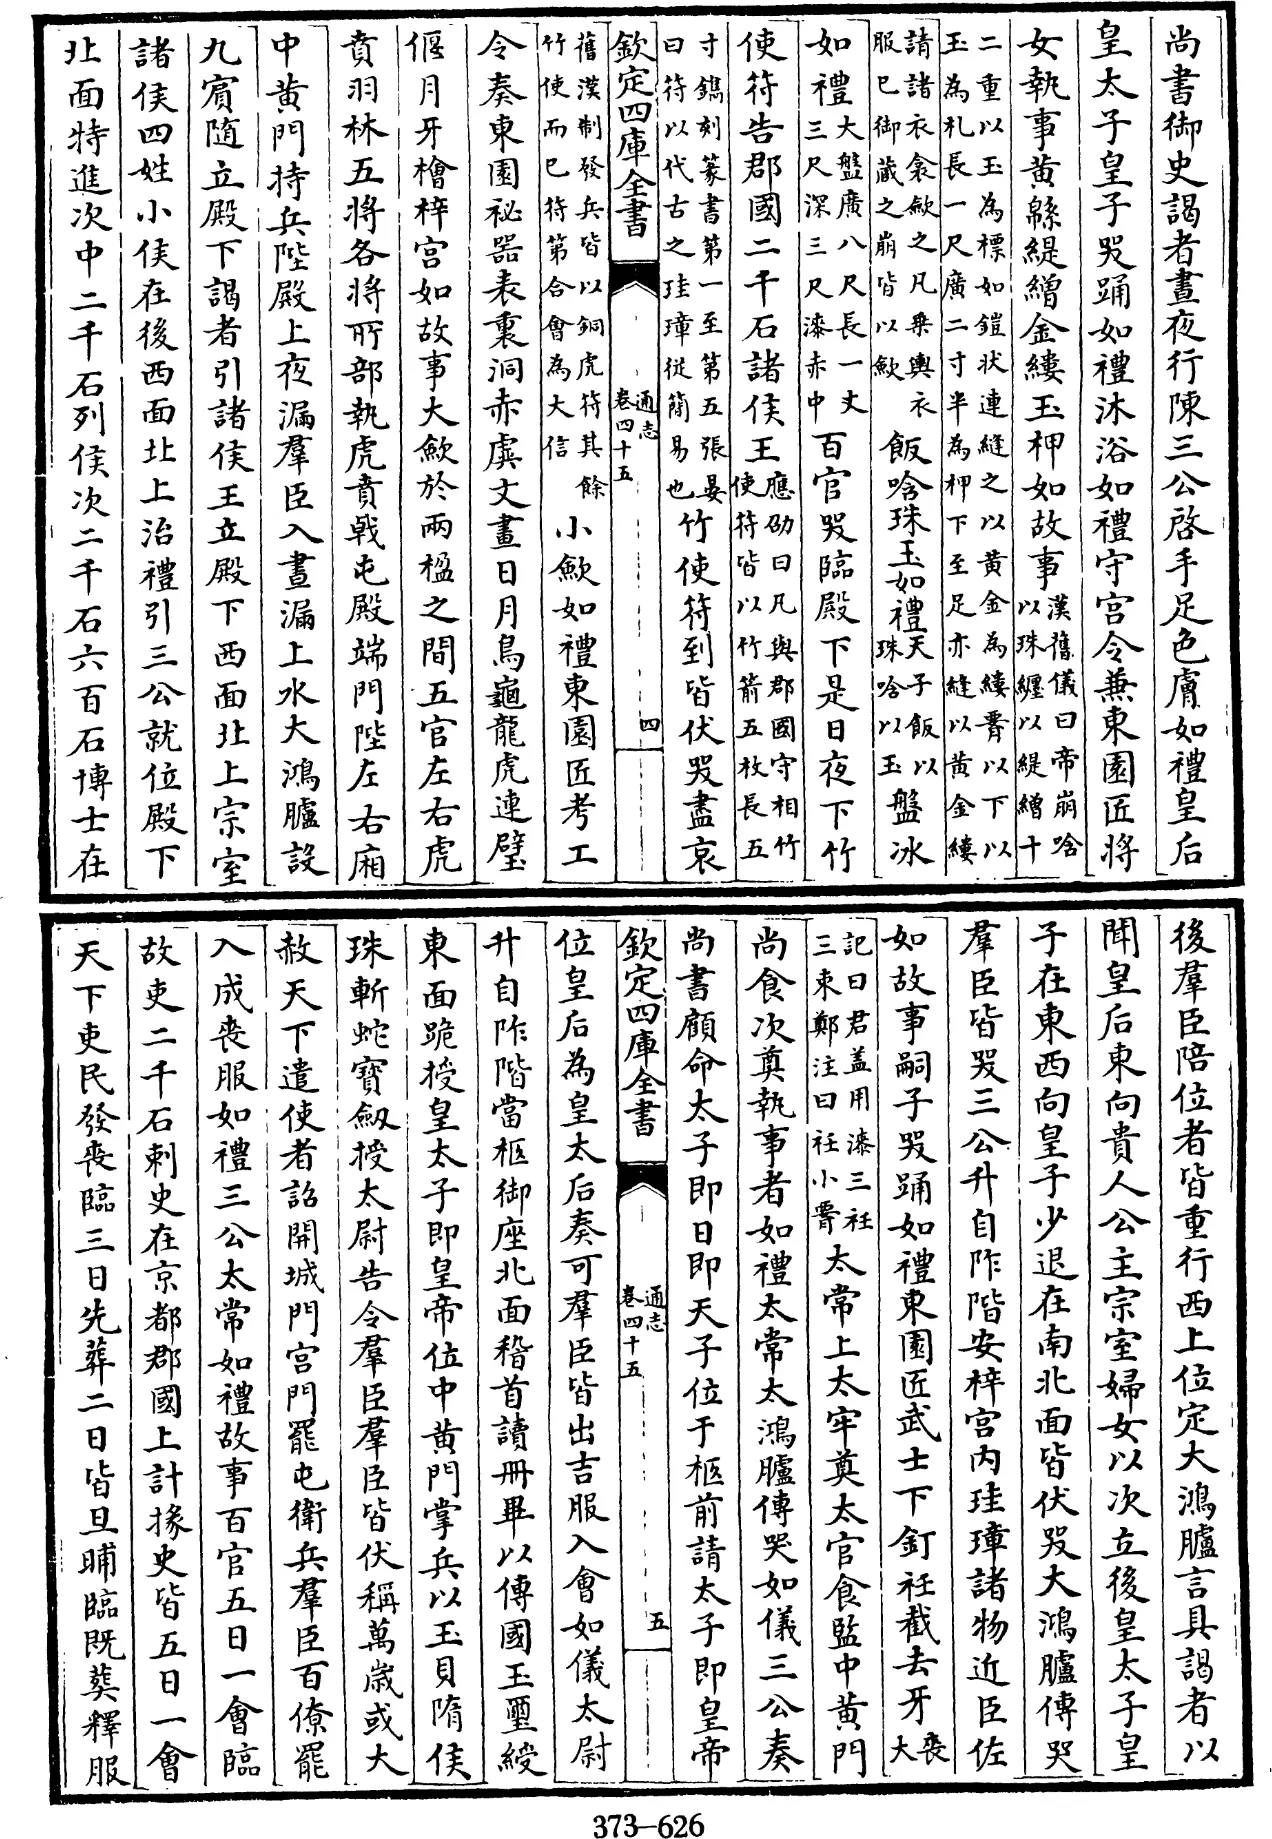 尚書御史謁者晝夜行陳三公啓手足色膚如禮皇后
皇太子皇子哭踊如禮沐浴如禮守宫令兼東園匠將
女執事黄緜緹繒金縷玉柙如故事漢舊儀曰帝崩唅以珠纏以緹繒十
二重以玉為標如鎧狀連縫之以黄金為縷署以下以玉為札長一尺廣二寸半為柙下至足亦縫以黄金縷
請諸衣衾斂之凡乗輿衣服已御藏之崩皆以斂飯唅珠玉如禮天子飯以珠唅以玉盤冰
如禮大盤廣八尺長一丈三尺深三尺漆赤中百官哭臨殿下是日夜下竹
使符告郡國二千石諸侯王應劭曰凡與郡國守相竹使符皆以竹箭五枚長五
寸鐫刻篆書第一至第五張晏曰符以代古之珪璋從簡易也竹使符到皆伏哭盡哀
欽定四庫全書 通志卷四十五 四
舊漢制發兵皆以銅虎符其餘竹使而已符第合會為大信小斂如禮東園匠考工
令奏東園祕器表裏洞赤虡文畫日月鳥龜龍虎連璧
偃月牙檜梓宫如故事大斂於兩楹之間五官左右虎
賁羽林五將各將所部執虎賁戟屯殿端門陛左右廂
中黄門持兵陛殿上夜漏羣臣入晝漏上水大鴻臚設
九賔隨立殿下謁者引諸侯王立殿下西面北上宗室
諸侯四姓小侯在後西面北上治禮引三公就位殿下
北面特進次中二千石列侯次二千石六百石博士在
後羣臣陪位者皆重行西上位定大鴻臚言具謁者以
聞皇后東向貴人公主宗室婦女以次立後皇太子皇
子在東西向皇子少退在南北面皆伏哭大鴻臚傳哭
羣臣皆哭三公升自阼階安梓宫内珪璋諸物近臣佐
如故事嗣子哭踊如禮東園匠武士下釘衽截去牙喪大
記曰君蓋用漆三衽三束鄭注曰衽小署太常上太牢奠太官食監中黄門
尚食次奠執事者如禮太常太鴻臚傳哭如儀三公奏
尚書顧命太子即日即天子位于柩前請太子即皇帝
欽定四庫全書 通志卷四十五 五
位皇后為皇太后奏可羣臣皆出吉服入會如儀太尉
升自阼階當柩御座北面稽首讀冊畢以傳國玉璽綬
東面跪授皇太子即皇帝位中黄門掌兵以玉貝隋侯
珠斬蛇寶劔授太尉告令羣臣羣臣皆伏稱萬歲或大
赦天下遣使者詔開城門宫門罷屯衛兵羣臣百僚罷
入成喪服如禮三公太常如禮故事百官五日一會臨
故吏二千石刺史在京都郡國上計掾史皆五日一會
天下吏民發喪臨三日先葬二日皆旦晡臨既葬釋服
373-626